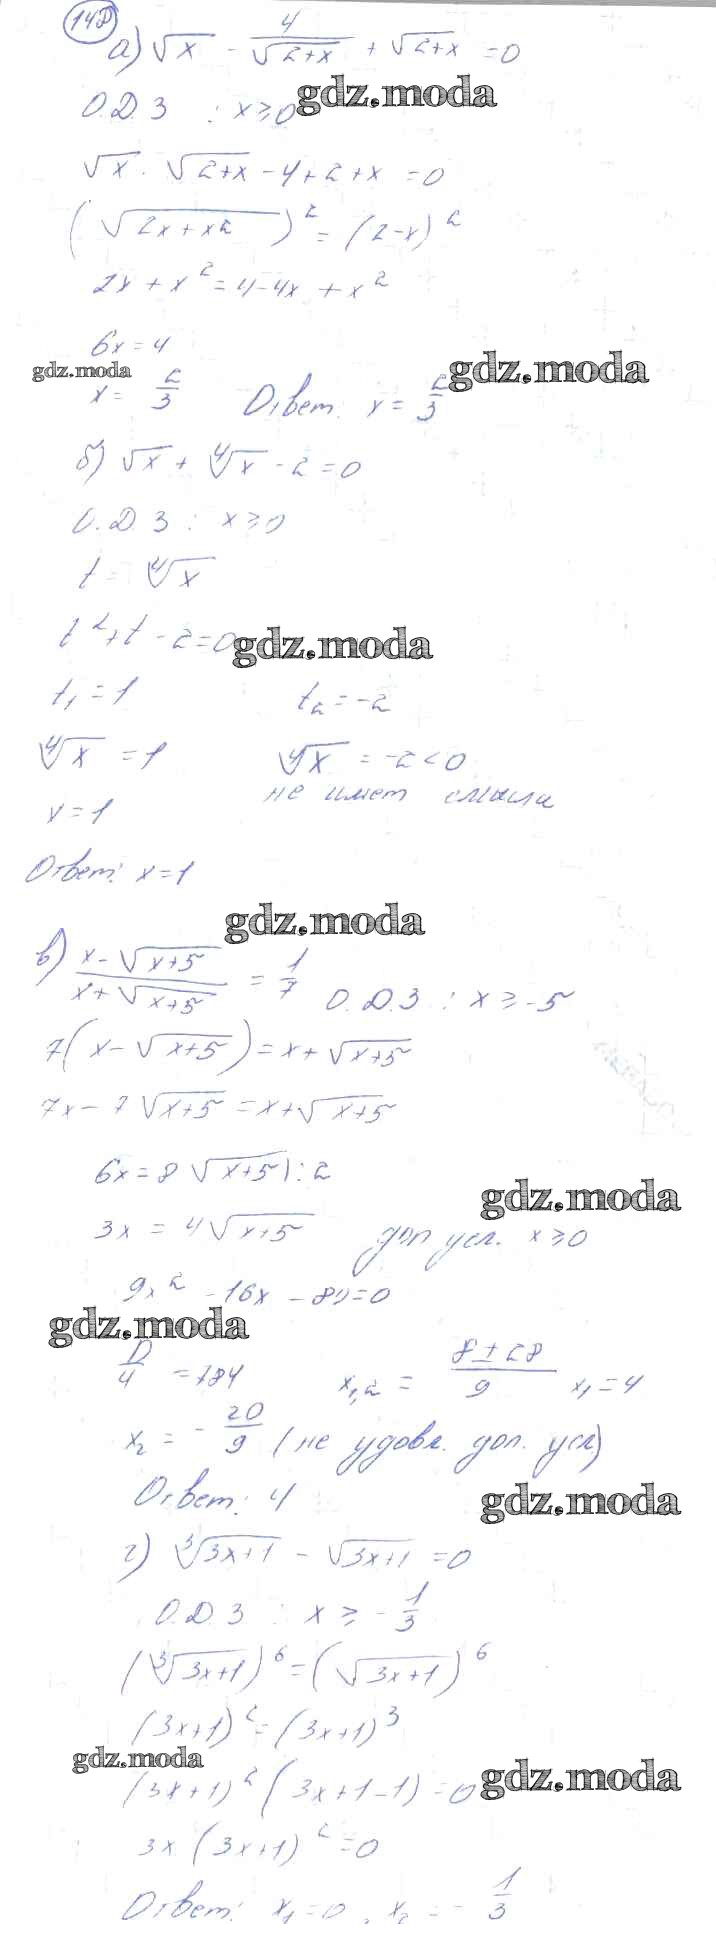 148
а) √x - 4/√(2+x) + √(2+x) = 0
О.Д.З : x ≥ 0
gdz.moda
√x · √(2+x) - 4 + 2 + x = 0
(√(2x+x²))² = (2-x)²
2x + x² = 4 - 4x + x²
6x = 4
gdz.moda gdz.moda
x = 2/3 Ответ: x = 2/3
б) √x + ⁴√x - 2 = 0
О.Д.З : x ≥ 0
t = ⁴√x
t² + t - 2 = 0
gdz.moda
t₁ = 1 t₂ = -2
⁴√x = 1 ⁴√x = -2 < 0
x = 1 не имет смысла
Ответ: x = 1
gdz.moda
в) (x - √(x+5))/(x + √(x+5)) = 1/7 О.Д.З : x ≥ -5
7(x - √(x+5)) = x + √(x+5)
7x - 7√(x+5) = x + √(x+5)
6x = 8√(x+5) | : 2
gdz.moda
3x = 4√(x+5) доп усл. x ≥ 0
9x² - 16x - 80 = 0
gdz.moda
D/4 = 784 x₁,₂ = (8 ± 28)/9 x₁ = 4
x₂ = - 20/9 (не удовл. доп. усл)
Ответ: 4
gdz.moda
г) ³√(3x+1) - √(3x+1) = 0
О.Д.З : x ≥ - 1/3
(³√(3x+1))⁶ = (√(3x+1))⁶
(3x+1)² = (3x+1)³
gdz.moda gdz.moda
(3x+1)² (3x+1-1) = 0
3x (3x+1)² = 0
Ответ: x₁ = 0, x₂ = - 1/3